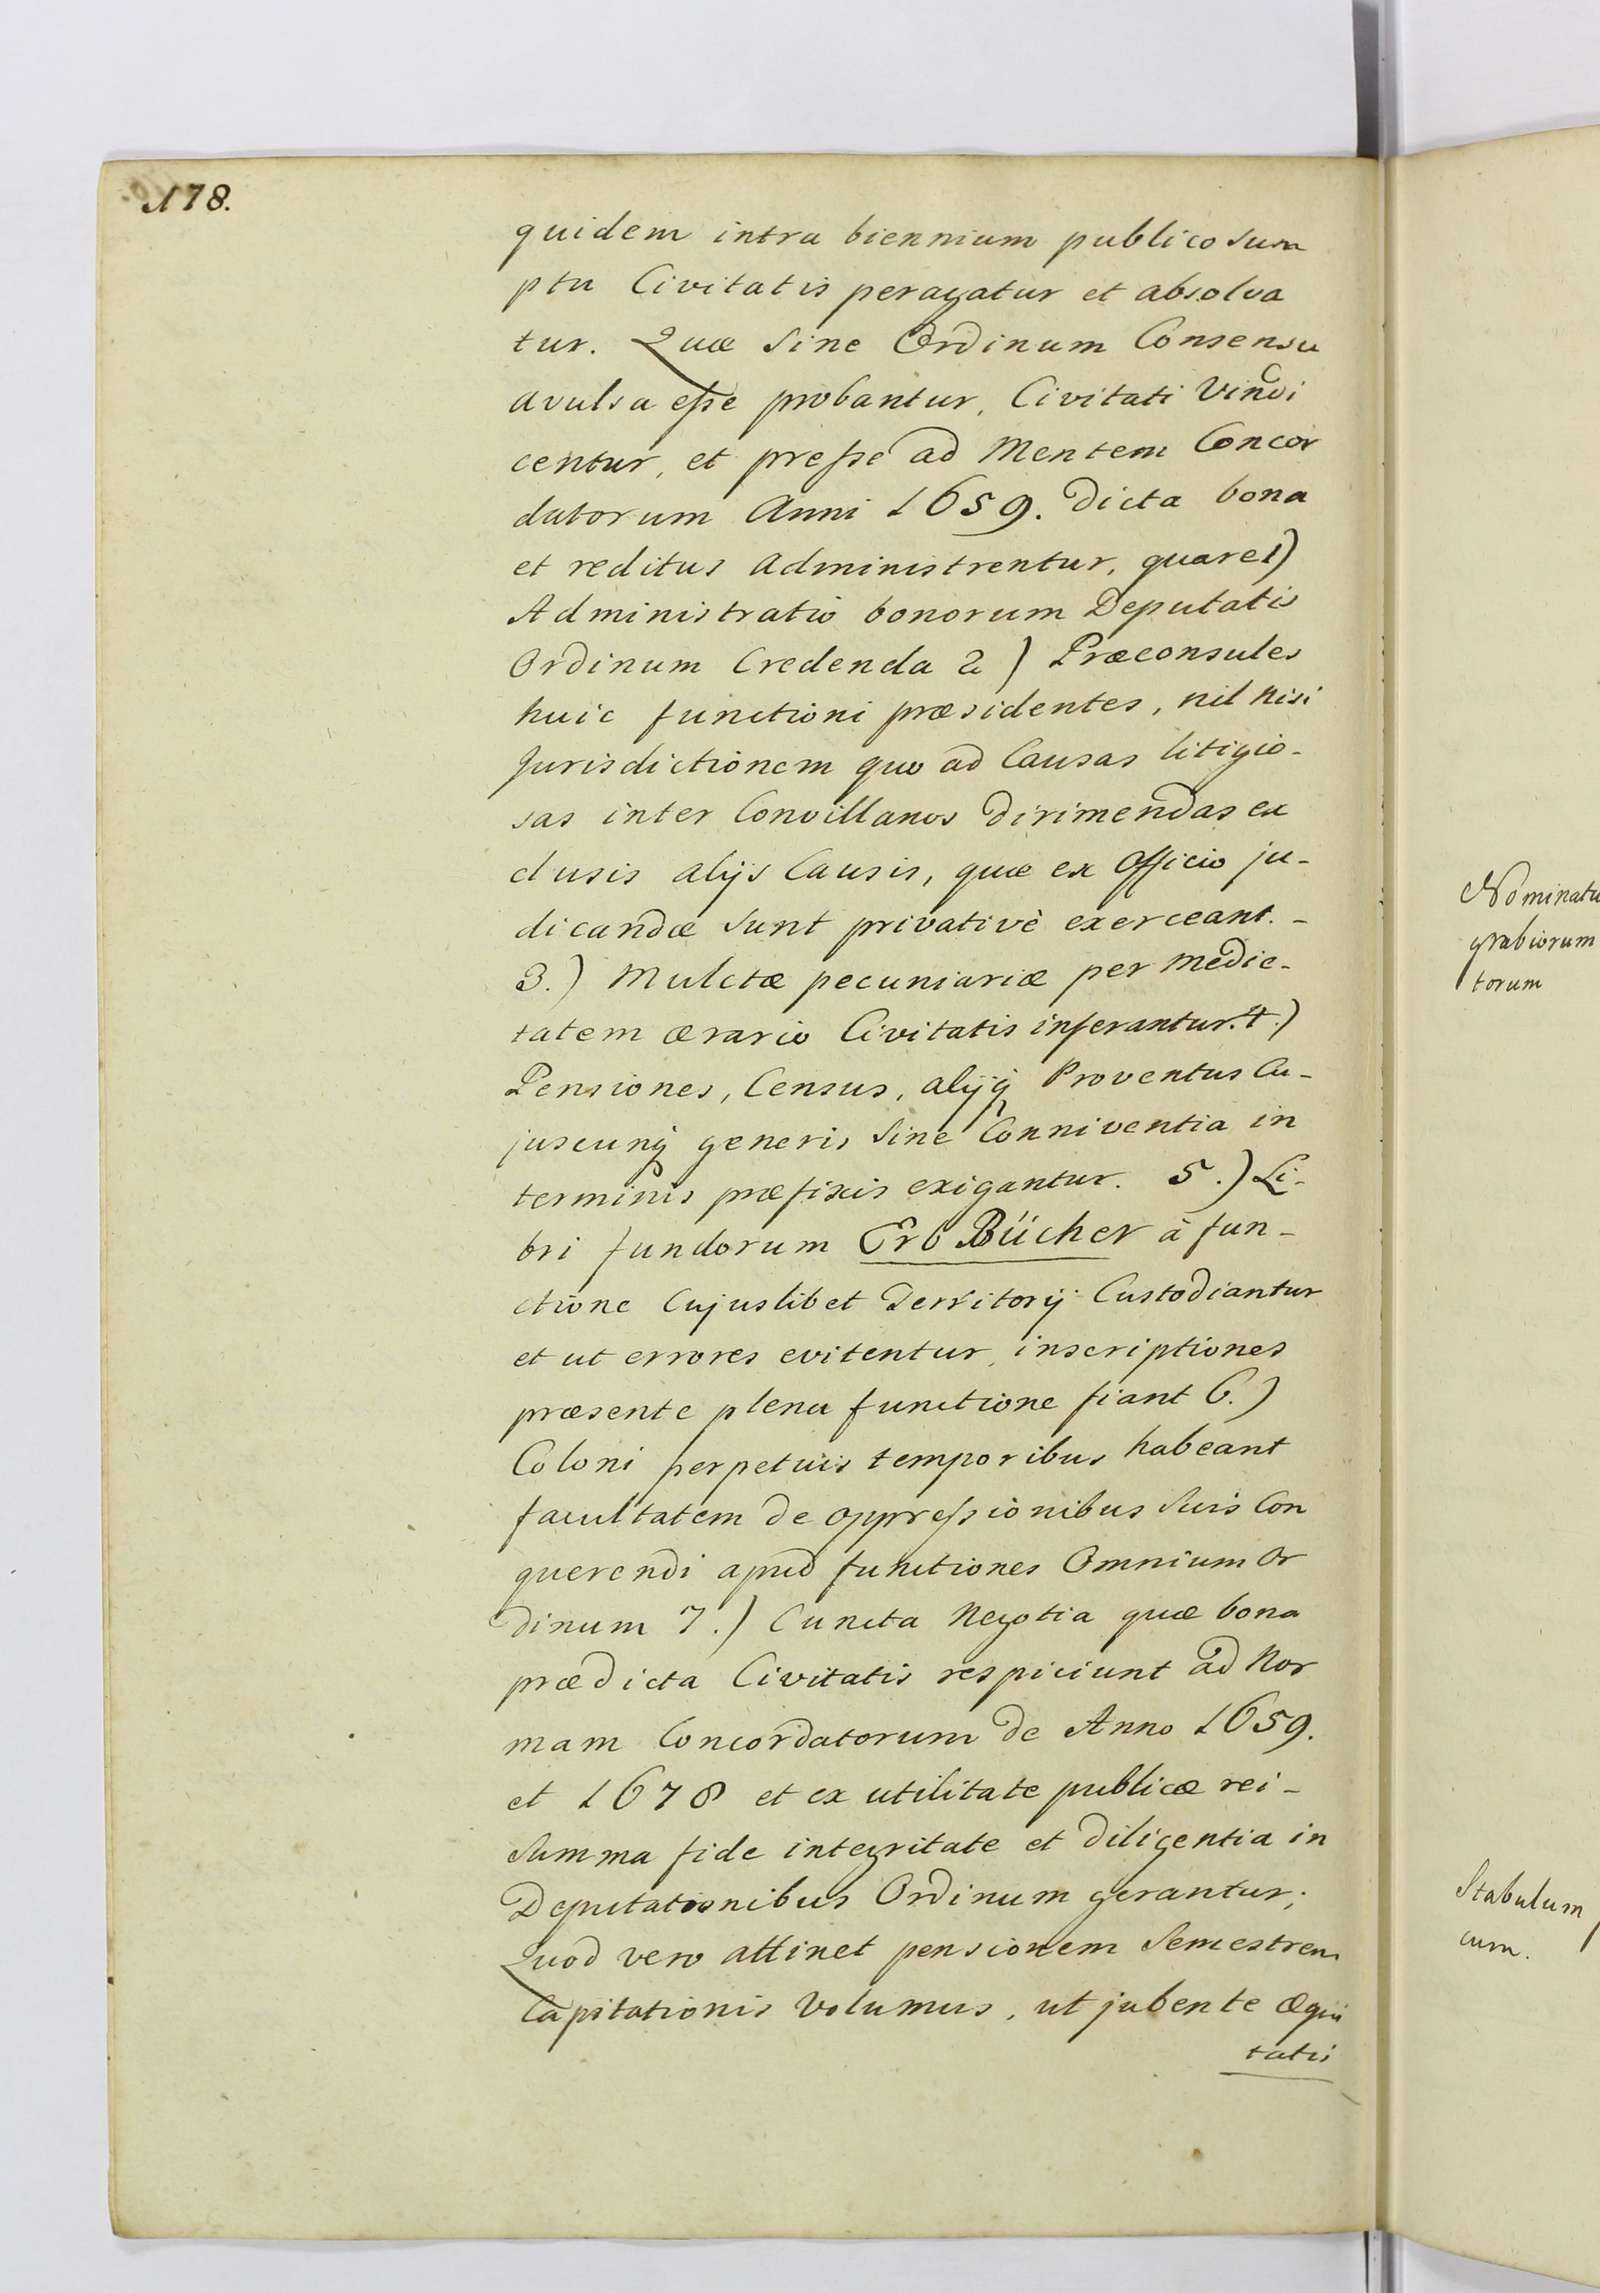 178.
quidem intra biennium publico sum
ptu Civitatis peragatur et absolva
tur. Quæ sine Ordinum Consensu
avulsa esse probantur, Civitati Vindi
centur, et presse ad Mentem Concor
datorum Anni 1659. dicta bona
et reditus administrentur, quare 1)
Administratio bonorum Deputatis
Ordinum Credenda 2) Præconsules
huic functioni præsidentes, nil nisi
Jurisdictionem quo ad Causas litigio-
sas inter Convillanos dirimendas ex
clusis alijs Causis, quæ ex Officio ju-
dicandæ sunt privativè exerceant. -
3.) Mulctæ pecuniariæ per medie-
tatem ærario Civitatis inferantur. 4.)
Pensiones, Census, alijq Proventus Cu-
juscunq generis sine Conniventia in
terminis præfixis exigantur. 5.) Li-
bri fundorum Erb Bücher à fun-
ctione Cujuslibet Territorij Custodiantur
et ut errores evitentur, inscriptiones
præsente plena functione fiant 6.)
Coloni perpetuis temporibus habeant
facultatem de oppressionibus suis Con
querendi apud functiones Omnium Or
dinum 7.) Cuncta Negotia quæ bona
prædicta Civitatis respiciunt ad Nor
mam Concordatorum de Anno 1659.
et 1678 et ex utilitate publicæ rei -
summa fide integritate et diligentia in
Deputationibus Ordinum gerantur;
Quod vero attinet pensionem Semestrem
Capitationis Volumus, ut jubente æqui
tatis
Nominatu
grabiorum
torum
Stabulum
cum.